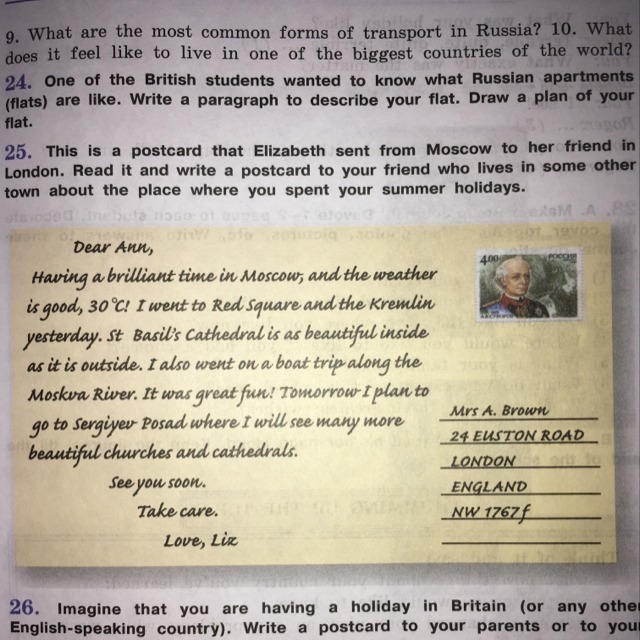 9. What are the most common forms of transport in Russia? 10. What
does it feel like to live in one of the biggest countries of the world?
24. One of the British students wanted to know what Russian apartments
(flats) are like. Write a paragraph to describe your flat. Draw a plan of your
flat.
25. This is a postcard that Elizabeth sent from Moscow to her friend in
London. Read it and write a postcard to your friend who lives in some other
town about the place where you spent your summer holidays.
Dear Ann,
Having a brilliant time in Moscow, and the weather
is good, 30°C! I went to Red Square and the Kremlin
yesterday. St Basil's Cathedral is as beautiful inside
as it is outside. I also went on a boat trip along the
Moskva River. It was great fun! Tomorrow I plan to
go to Sergiyev Posad where I will see many more
beautiful churches and cathedrals.
See you soon.
Take care.
Love, Liz
4.00 РОССИЯ
Mrs A. Brown
24 EUSTON ROAD
LONDON
ENGLAND
NW 1767f
26. Imagine that you are having a holiday in Britain (or any other
English-speaking country). Write a postcard to your parents or to you